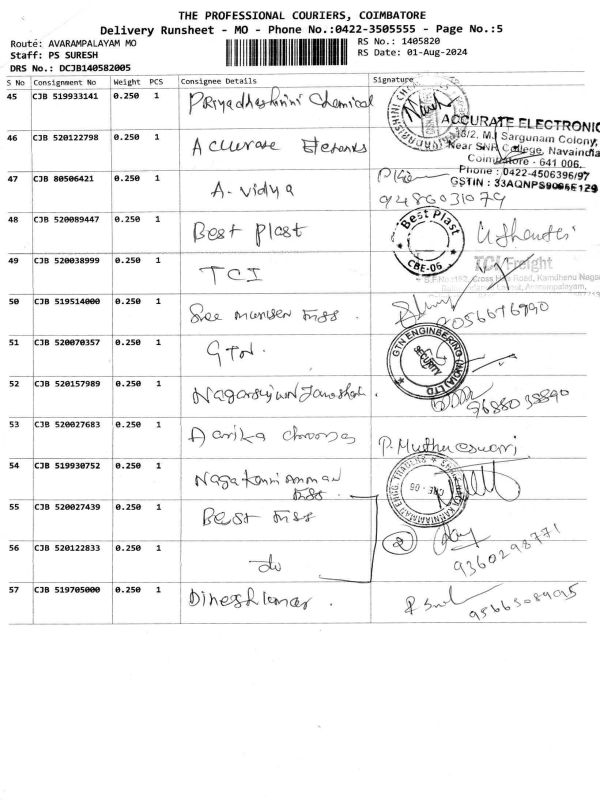 THE PROFESSIONAL COURIERS, COIMBATORE
Delivery Runsheet - MO - Phone No.:0422-3505555 - Page No.:5
Route: AVARAMPALAYAM MO
RS No.: 1405820
Staff: PS SURESH
RS Date: 01-Aug-2024
DRS No.: DCJB140582005
S No Consignment No Weight PCS Consignee Details Signature
45 CJB 519933141 0.250 1 Priyadharshini Chemical
46 CJB 520122798 0.250 1 Accurate
ACCURATE ELECTRONIC
Sargunam Colony,
Near SNR College, Navaindia
Coimbatore - 641 006.
Phone : 0422-4506396/97
GSTIN : 33AQNPS9006E1Z9
47 CJB 80506421 0.250 1 A. vidya
9486031079
48 CJB 520089447 0.250 1 Best plast
Best Plast
CBE-06
49 CJB 520038999 0.250 1 TCI
TCI Freight
Cross Road, Kamdhenu Nagar
50 CJB 519514000 0.250 1 Sree
9056676990
51 CJB 520070357 0.250 1 GTN.
GTN ENGINEERING (INDIA) LTD
SECURITY
52 CJB 520157989 0.250 1
9688038890
53 CJB 520027683 0.250 1
P. Mutheeswari
54 CJB 519930752 0.250 1 Nagakanniamman
CBE - 06
55 CJB 520027439 0.250 1 Best
2
9360298771
56 CJB 520122833 0.250 1 do
57 CJB 519705000 0.250 1 Dineshkumar.
9566508995